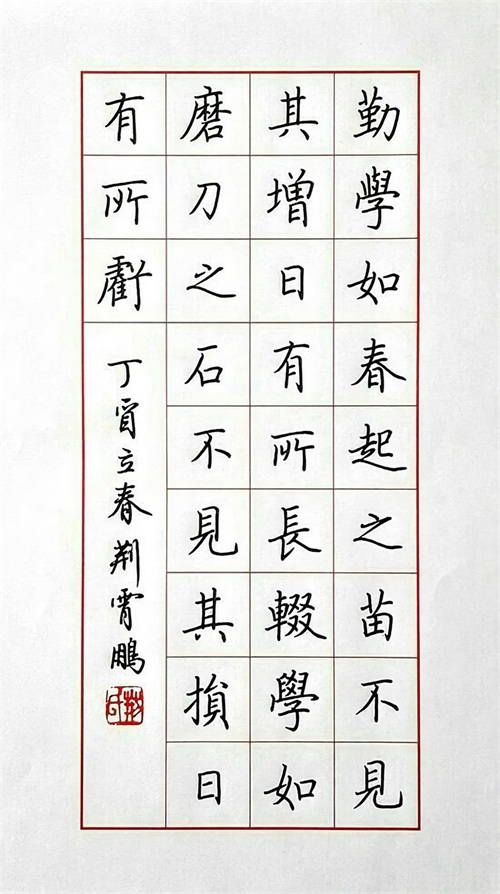 勤學如春起之苗不見
其增日有所長輟學如
磨刀之石不見其損日
有所虧
丁酉立春荆霄鵬